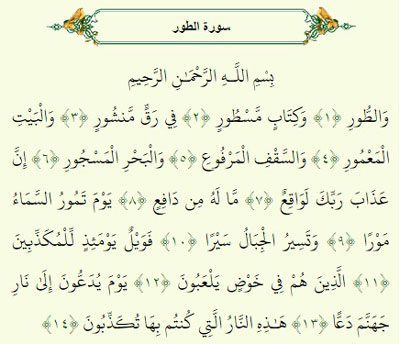 سورة الطور
بِسْمِ اللَّـهِ الرَّحْمَـٰنِ الرَّحِيمِ
وَالطُّورِ ﴿١﴾ وَكِتَابٍ مَّسْطُورٍ ﴿٢﴾ فِي رَقٍّ مَّنشُورٍ ﴿٣﴾ وَالْبَيْتِ
الْمَعْمُورِ ﴿٤﴾ وَالسَّقْفِ الْمَرْفُوعِ ﴿٥﴾ وَالْبَحْرِ الْمَسْجُورِ ﴿٦﴾ إِنَّ
عَذَابَ رَبِّكَ لَوَاقِعٌ ﴿٧﴾ مَّا لَهُ مِن دَافِعٍ ﴿٨﴾ يَوْمَ تَمُورُ السَّمَاءُ
مَوْرًا ﴿٩﴾ وَتَسِيرُ الْجِبَالُ سَيْرًا ﴿١٠﴾ فَوَيْلٌ يَوْمَئِذٍ لِّلْمُكَذِّبِينَ
﴿١١﴾ الَّذِينَ هُمْ فِي خَوْضٍ يَلْعَبُونَ ﴿١٢﴾ يَوْمَ يُدَعُّونَ إِلَىٰ نَارِ
جَهَنَّمَ دَعًّا ﴿١٣﴾ هَـٰذِهِ النَّارُ الَّتِي كُنتُم بِهَا تُكَذِّبُونَ ﴿١٤﴾